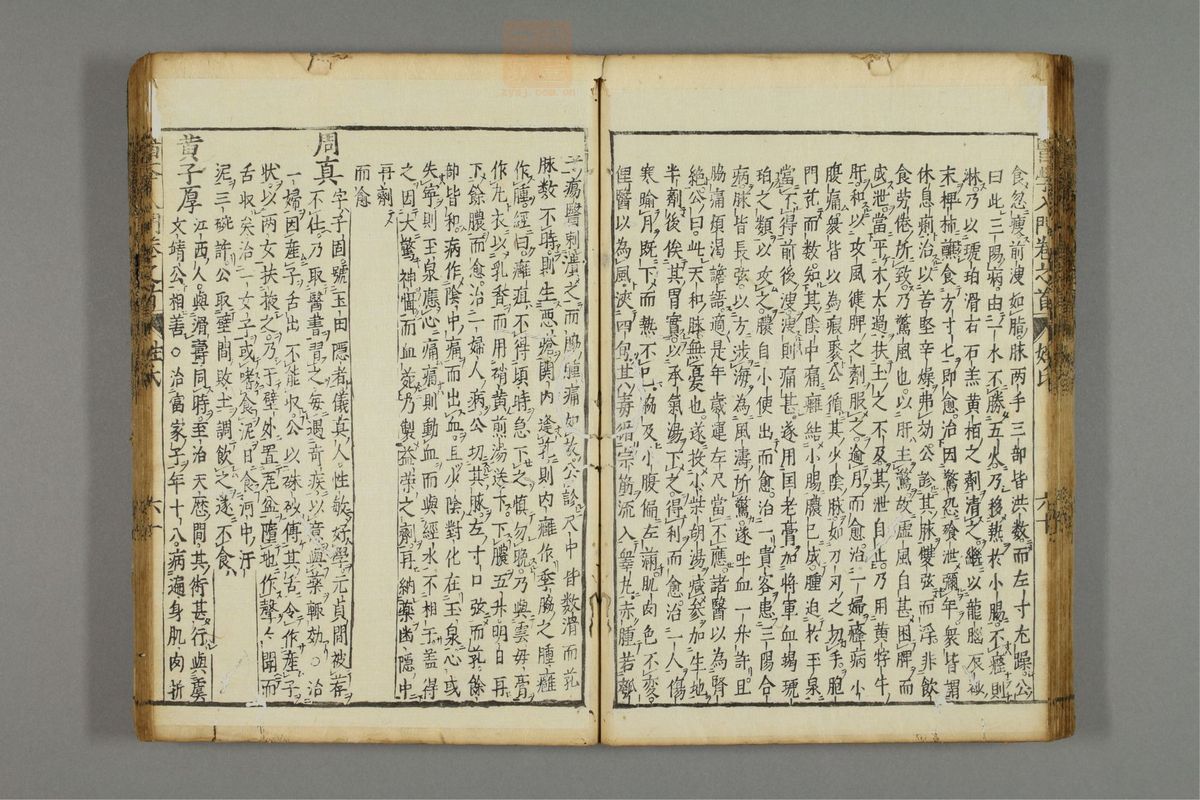 食忽瘦前溲如脂脉兩手三部皆洪数而左寸尤躁公
曰此三陽病由一水不勝五火乃移熱於小腸不癃則
淋乃以琥珀滑石石羔黄栢之劑清之継以龍腦辰砂
末枰柿蘸食方寸七即愈治因驚恐飱泄彌年衆皆謂
休息痢治以苦堅辛燥弗効公診其脉雙弦而浮非飲
食劳倦所致乃驚風也以肝主驚故虚風自甚困脾而
成泄當平木太過扶土之不及其泄自止乃用黄牸牛
肝和以攻風健脾之劑服之逾月而愈治一婦癃病小
腹痛衆皆以為瘕聚公循其少隂脉如刀刃之切手胞
門芤而数知其隂中痛癰結小腸膿已成腫迫於玉泉
當不得前後溲溲則痛甚遂用国老膏加将軍血竭琥
珀之類以攻之膿自小使出而愈治一貴客患三陽合
病脉皆長弦以方涉海為風濤所驚遂吐血一升許且
脇痛煩渴譫語適是年歳運左尺當不應諸醫以為腎
絶公曰此天和脉無憂也遂投小柴胡湯減参加生地
半劑後俟其胃實以承氣湯下之得利而愈治一人傷
寒踰月既下而熱不已脇及小腹偏左滿肌肉色不変
俚醫以為風浹四
脉数不時則生悪瘡関内逢芤則内癰作季脇之腫癰
作膓經曰癰疽不得頃時急下之慎勿晩乃與雲母膏
作丸衣以乳香而用硝黄煎湯送下下膿五升明日再
下餘膿而愈治一婦人病公切其脉左寸口弦而芤餘
部皆和病作隂中痛而出血且少隂對化在玉泉心或
失寧則玉泉應心痛痛則動血而與經水不相干盖得
之因大驚神慴而血菀乃製益榮之劑再納藥幽隱中
再劑
而愈
周真
字子固號玉田隠者儀真人性敏好學元貞間被荐
不仕乃取醫書習之每遇竒疾以意與藥輒効○治
一婦因産子舌出不能収公以硃砂傅其舌令作産子
状以两女扶掖之乃于壁外置瓦盆墮地作聲々聞而
舌収矣治一女子或嗜食泥日食河中汙
泥三碗許公取壁間敗土調飲之遂不食
黄子厚
江西人與滑壽同時至治天厯間其術甚行與虞
文靖公相善○治富家子年十八病遍身肌肉折